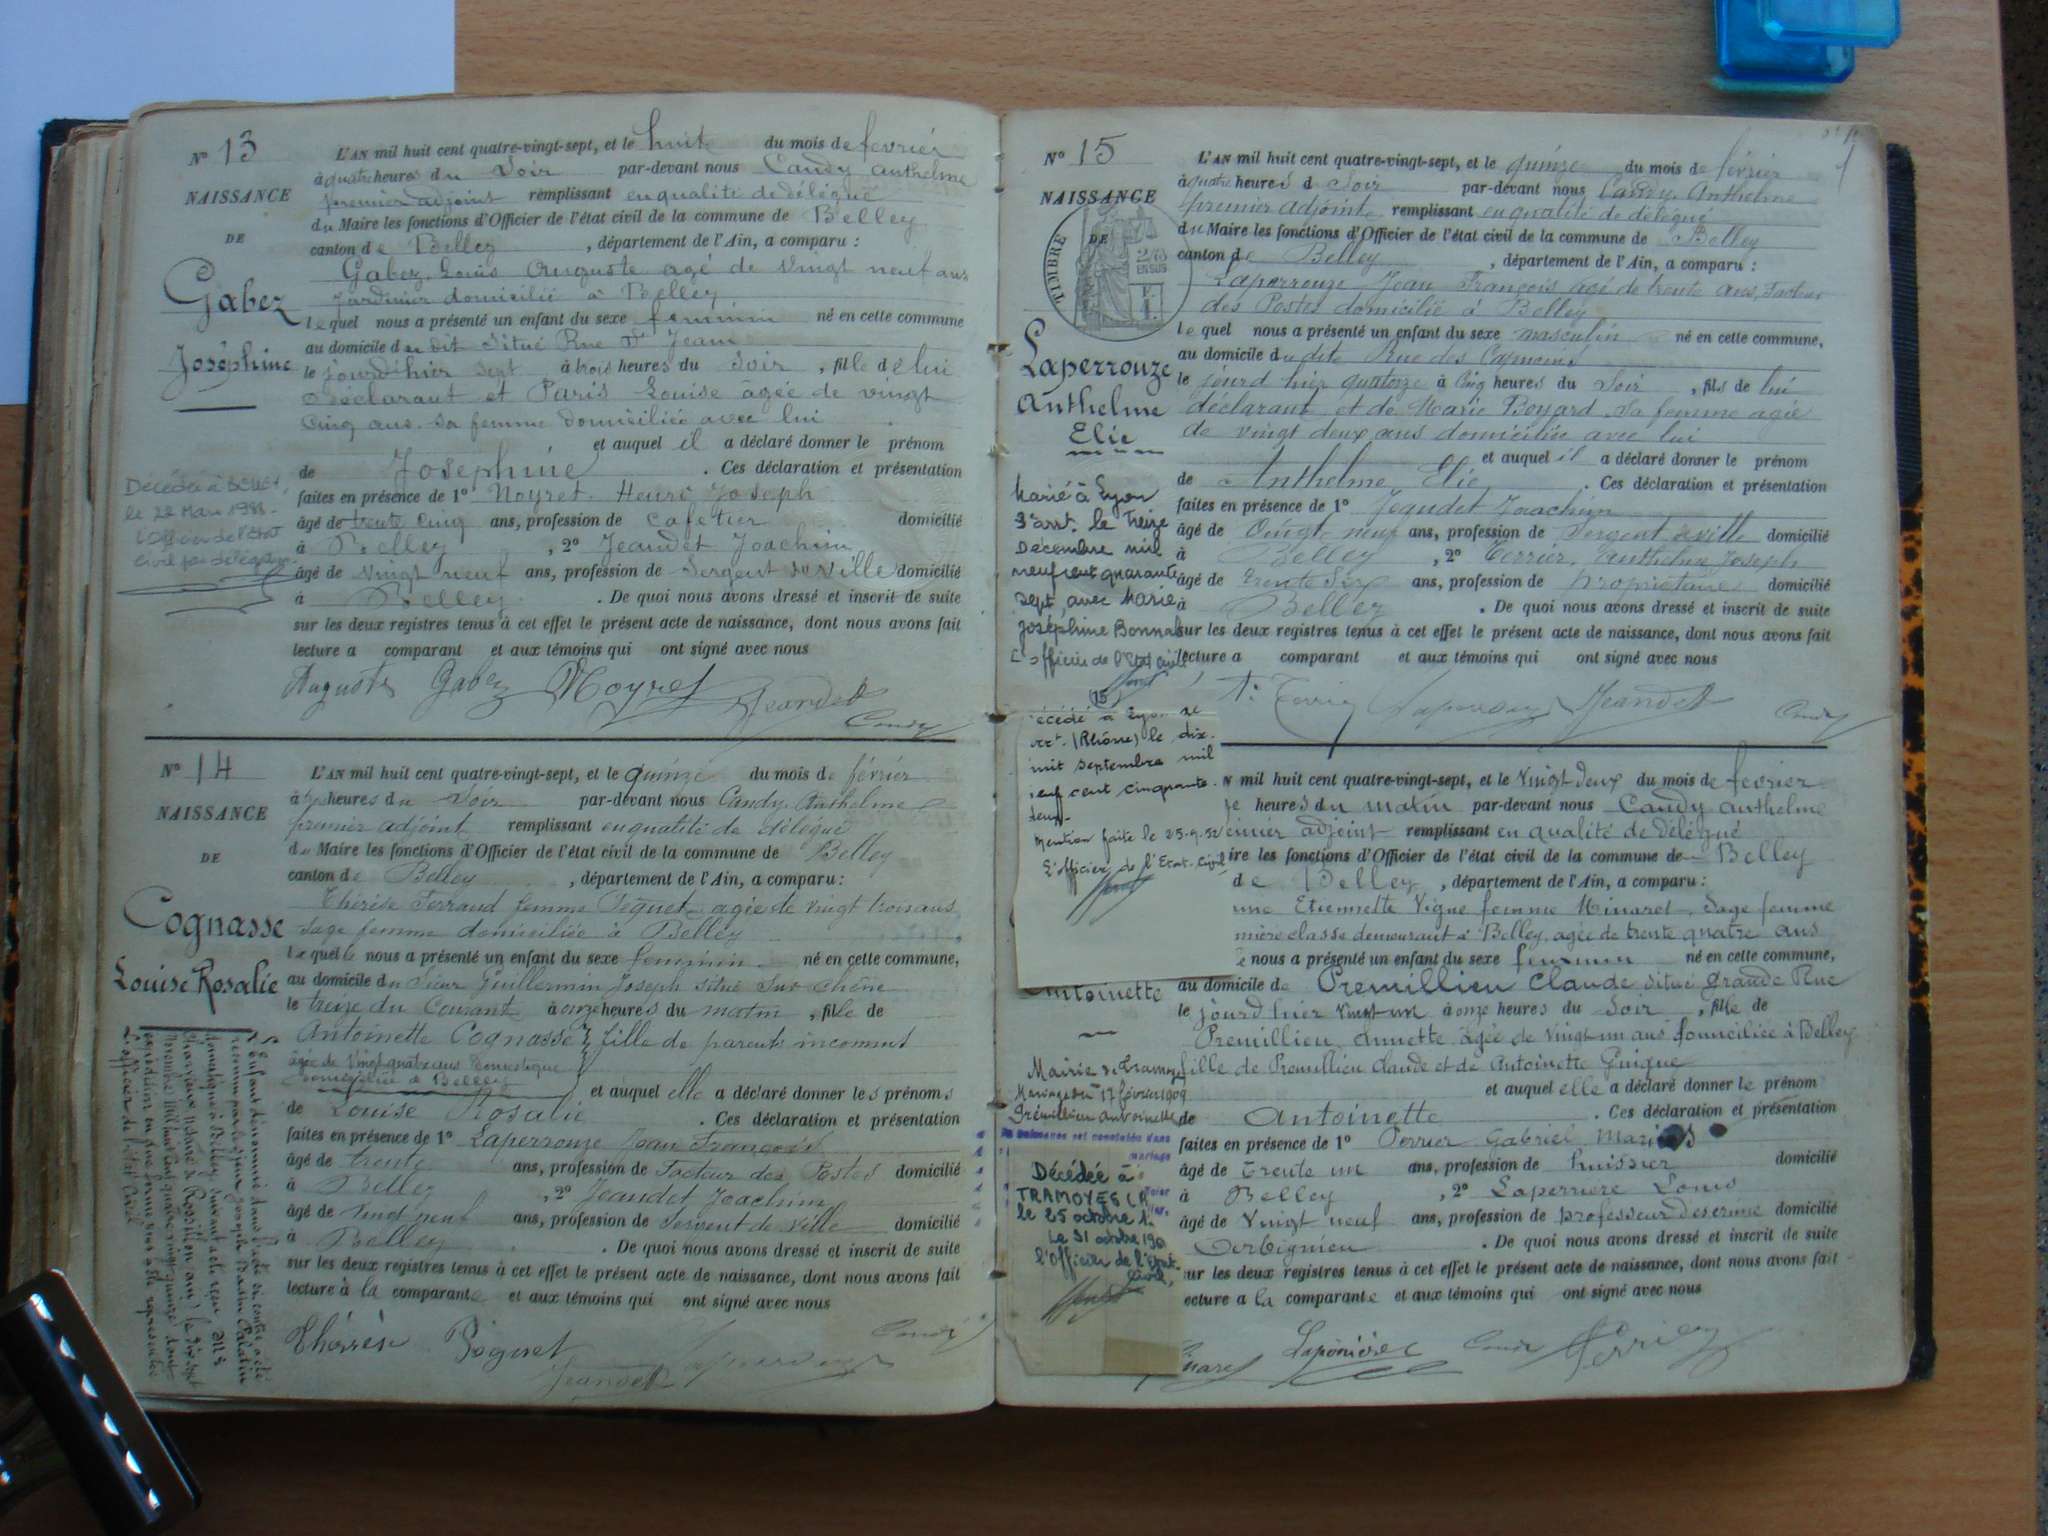 N° 13
NAISSANCE
DE
Gabez
Joséphine
L'AN mil huit cent quatre-vingt-sept, et le huit du mois de fevrier
à quatre heures du Soir par-devant nous Candy anthelme
premier adjoint remplissant en qualité de délégué
du Maire les fonctions d'Officier de l'état civil de la commune de Belley
canton de Belley, département de l'Ain, a comparu :
Gabez Louis Auguste agé de vingt neuf ans
Jardinier domicilié à Belley
lequel nous a présenté un enfant du sexe feminin né en cette commune
au domicile du dit Situé Rue St Jean
le jourd'hier sept à trois heures du Soir, fille de lui
Déclarant et Paris Louise âgée de vingt
cinq ans sa femme domiciliée avec lui
et auquel il a déclaré donner le prénom
de Josephine. Ces déclaration et présentation
faites en présence de 1° Noyret Henri Joseph
âgé de trente cinq ans, profession de cafetier domicilié
à Belley, 2° Jeandet Joachim
âgé de vingt neuf ans, profession de Sergent de Ville domicilié
à Belley. De quoi nous avons dressé et inscrit de suite
sur les deux registres tenus à cet effet le présent acte de naissance, dont nous avons fait
lecture a comparant et aux témoins qui ont signé avec nous
Auguste Gabez Noyret Jeandet
Candy
Décédée à BELLEY,
le 22 Mars 1988
L'Officier de l'Etat
Civil par délégation
N° 14
NAISSANCE
DE
Cognasse
Louise Rosalie
L'AN mil huit cent quatre-vingt-sept, et le quinze du mois de février
heures du Soir par-devant nous Candy Anthelme
premier adjoint remplissant en qualité de délégué
du Maire les fonctions d'Officier de l'état civil de la commune de Belley
canton de Belley, département de l'Ain, a comparu :
Thérèse Ferrand femme agée de vingt trois ans
sage femme domiciliée à Belley
lequel le nous a présenté un enfant du sexe feminin né en cette commune,
au domicile du Sieur Guillermin Joseph situé Sur chêne
le treize du Courant à onze heures du matin, fille de
Antoinette Cognasse, fille de parents inconnus
âgée de Vingt quatre ans Domestique
domiciliée à Belley
et auquel elle a déclaré donner les prénoms
de Louise Rosalie. Ces déclaration et présentation
faites en présence de 1° Laperrouze Jean François
âgé de trente ans, profession de facteur des Postes domicilié
à Belley, 2° Jeandet Joachim
âgé de vingt neuf ans, profession de Sergent de Ville domicilié
à Belley. De quoi nous avons dressé et inscrit de suite
sur les deux registres tenus à cet effet le présent acte de naissance, dont nous avons fait
lecture à la comparante et aux témoins qui ont signé avec nous
Thérèse
Jeandet
L'enfant dénommé dans l'acte ci contre a été
reconnu par le sieur Joseph
domestique à Belley, suivant acte reçu
L'officier de l'état Civil
N° 15
NAISSANCE
DE
TIMBRE
Laperrouze
Anthelme
Elie
L'AN mil huit cent quatre-vingt-sept, et le quinze du mois de février
à quatre heures d Soir par-devant nous Candy Anthelme
premier adjoint remplissant en qualité de délégué
du Maire les fonctions d'Officier de l'état civil de la commune de Belley
canton de Belley, département de l'Ain, a comparu :
Laperrouze Jean François agé de trente ans, facteur
des Postes domicilié à Belley
lequel nous a présenté un enfant du sexe masculin né en cette commune,
au domicile du dit Rue des
le jourd hier quatorze à cinq heures du Soir, fils de lui
déclarant et de Marie Boyard sa femme agée
de vingt deux ans domiciliée avec lui
et auquel il a déclaré donner le prénom
de Anthelme Elie. Ces déclaration et présentation
faites en présence de 1° Jeandet Joachim
âgé de Vingt neuf ans, profession de Sergent de ville domicilié
à Belley, 2° Terrier, anthelme Joseph
âgé de trente Six ans, profession de propriétaire domicilié
à Belley. De quoi nous avons dressé et inscrit de suite
sur les deux registres tenus à cet effet le présent acte de naissance, dont nous avons fait
lecture a comparant et aux témoins qui ont signé avec nous
Jeandet
Candy
Marié à Lyon
3e arrt. le Treize
Décembre mil
neuf cent quarante
sept, avec Marie
Joséphine Bonnat
L'officier de l'Etat civil
(15)
écédé à Lyon
(Rhône) le dix.
uit septembre mil
neuf cent cinquante-
deux-
Mention faite le 25-9-52
L'officier de l'Etat-civil
Antoinette
N mil huit cent quatre-vingt-sept, et le vingt deux du mois de fevrier
heures du matin par-devant nous Candy anthelme
emier adjoint remplissant en qualité de délégué
ire les fonctions d'Officier de l'état civil de la commune de Belley
de Belley, département de l'Ain, a comparu :
Etiennette Vigne femme Minaret, Sage femme
mière classe demeurant à Belley, agée de trente quatre ans
nous a présenté un enfant du sexe feminin né en cette commune,
au domicile de Premillieu Claude situé Grande Rue
le jourd hier vingt un à onze heures du Soir, fille de
Premillieu Annette agée de vingt un ans domiciliée à Belley
fille de Premillieu Claude et de Antoinette Guigue
et auquel elle a déclaré donner le prénom
de Antoinette. Ces déclaration et présentation
faites en présence de 1° Perrier Gabriel Marius
âgé de trente un ans, profession de huissier domicilié
à Belley, 2° Laperriere Louis
âgé de Vingt neuf ans, profession de professeur descrime domicilié
Virignieu. De quoi nous avons dressé et inscrit de suite
ur les deux registres tenus à cet effet le présent acte de naissance, dont nous avons fait
ecture a la comparante et aux témoins qui ont signé avec nous
Laperriere
Mairie de Tramoyes
Mariage du 17 février 1909
Prémillieu Antoinette
Décédée à
TRAMOYES
le 25 octobre
Le 31 octobre
l'Officier de l'Etat-
Civil,